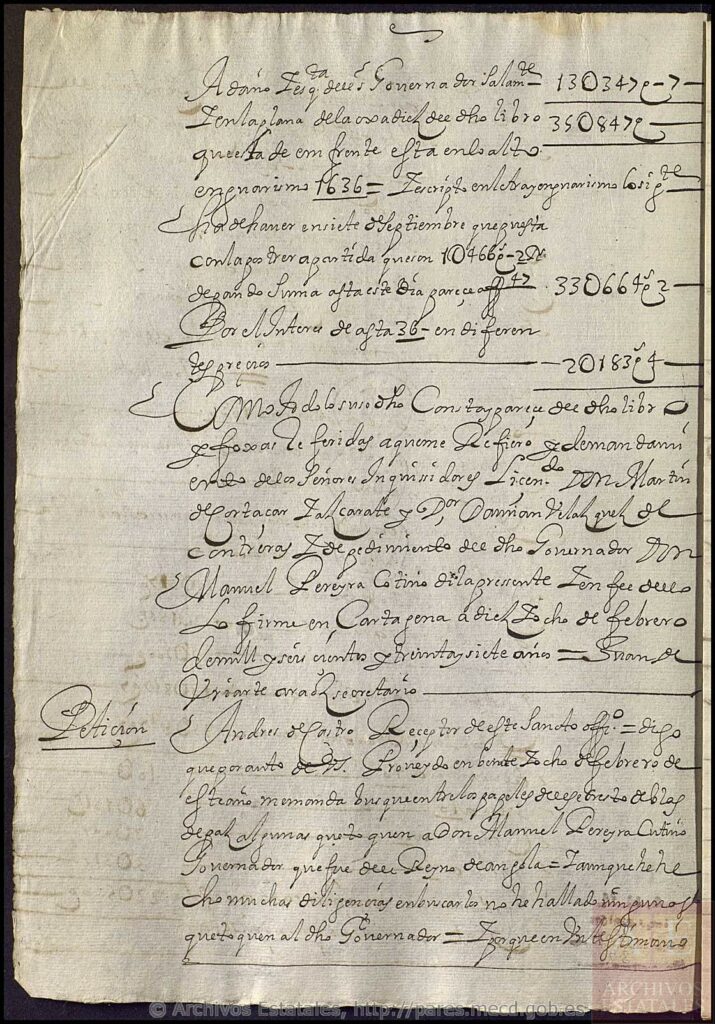 A daño Y esqta del sr Governador Salamte — 13U347p-7 —
Y en la plana de la oxa diez del dho libro 35U847p —
que esta de em frente esta en lo alto
en guarismo 1636 = Y escripto en letra y en guarismo lo sigte —
ha de haver en siete de septiembre que pusta
con la postrer a partida que son 1U466ps-2Rs
de pan do Suma asta este dia pareçe aff 47 33U664ps 2 —
Por el Interes de asta 36 - en diferen
tes precios — 2U183ps 4
Como todo lo suso dho Consta y pareçe del dho libro
y foxas Referidas a que me Refiero, y de mandami
ento de los Señores Inquisidores Licendo Don Martin
de Cortaçar Y alcarate y Dor Damian Velazquez de
Contreras Y de pedimiento del dho Governador Don
Manuel Pereyra Cotiño di la pressente Y en fee dello
Lo firme en Cartagena a diez Y ocho de febrero
de mill y seis cientos y treinta y siete años = Juan de
Uriarte araoz secretario —
Petición
Andres de Castro Reçeptor de este Sancto offio = digo
que por auto de Vs. Proveydo en beinte Y ocho de febrero de
este año, me manda busque entre los papeles del secresto de blas
de paz algunas que toquen a Don Manuel Pereyra Cutiño
Governador que fue del Reyno de angola = Y aunque he he
cho muchas diligencias en buscarlos no he hallado ningunos
que toquen al dho Governador = Y porque en Un testimonio
© Archivos Estatales, http://pares.mecd.gob.es
ARCHIVOS
ESTATALES